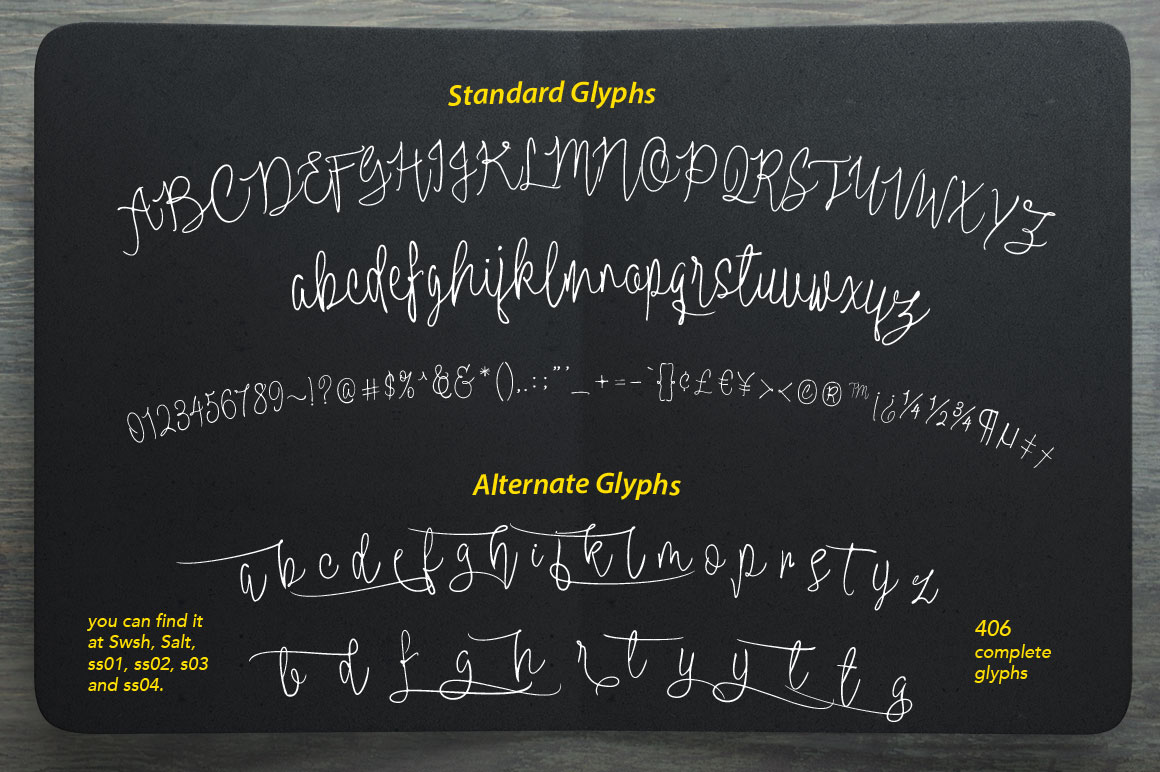 Standard Glyphs
ABCDEFGHIJKLMNOPQRSTUVWXYZ
abcdefghijklmnopqrstuvwxyz
0123456789~!?@#$%^&*(),.:;"'_+=-`{}¢£€¥><©®™¡¿¼½¾¶µ‡†
Alternate Glyphs
a b c d e f g h i j k l m o p r s t y z
you can find it
at Swsh, Salt,
ss01, ss02, s03
and ss04.
b d f g h r t y y t t g
406
complete
glyphs